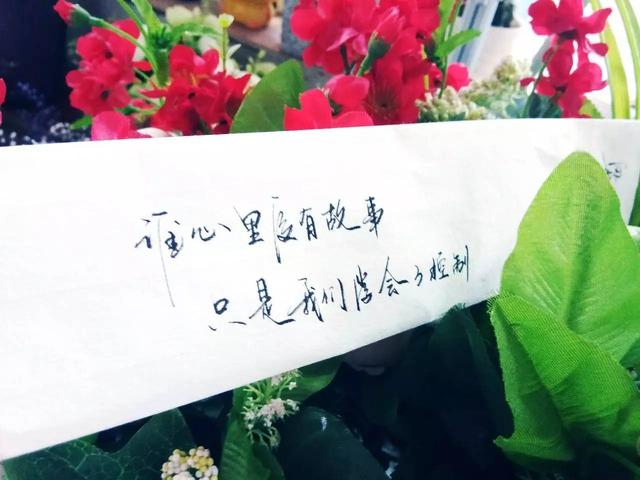 谁心里没有故事
只是我们学会了控制